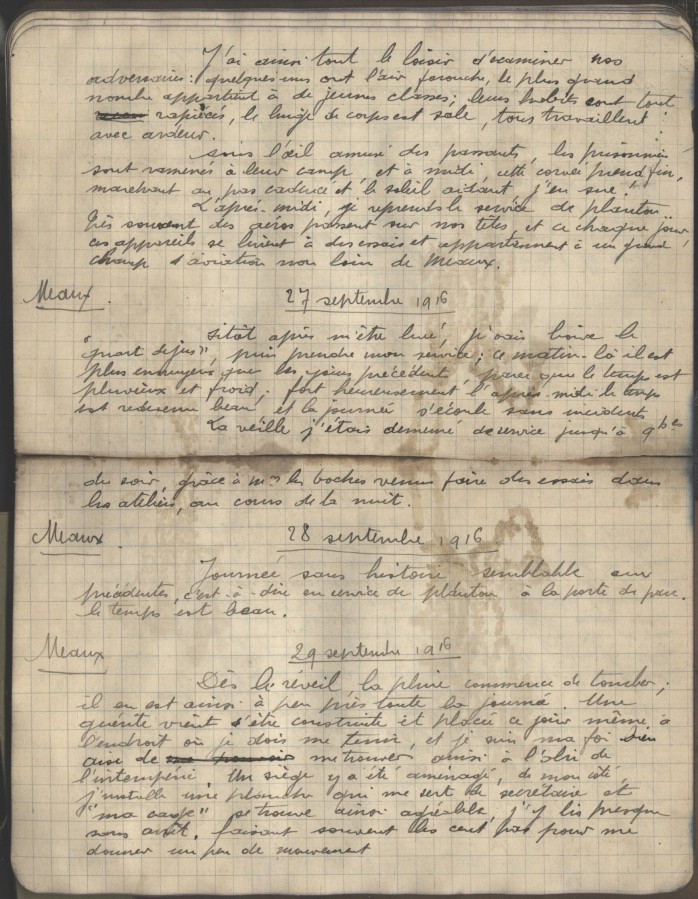 J'ai ainsi tout le loisir d'examiner nos
adversaires : quelques uns ont l'air farouche, le plus grand
nombre appartient à de jeunes classes ; leurs habits sont tout
rapiécés, le linge de corps est sale, tous travaillent
avec ardeur.
Sous l'œil amusé des passants, les prisonniers
sont ramenés à leur camp, et à midi, cette corvée prend fin,
marchant au pas cadencé et le soleil aidant j'en sue !
L'après-midi, je reprends le service de planton.
Très souvent des aéros passent sur nos têtes, et ce chaque jour
ces appareils se livrent à des essais et appartiennent à un grand
champ d'aviation non loin de Meaux.
Meaux. 27 septembre 1916
Sitôt après m'être levé, j'vais boire le
"quart de jus", puis prendre mon service ; ce matin-là il est
plus ennuyeux que les jours précédents, parce que le temps est
pluvieux et froid, fort heureusement l'après-midi le temps
est redevenu beau, et la journée s'écoule sans incidents
La veille j'étais demeuré de service jusqu'à 9 hes
du soir, grâce à mrs les boches venus faire des essais dans
les ateliers, au cours de la nuit.
Meaux. 28 septembre 1916
Journée sans histoire semblable aux
précédentes, c'est-à-dire en service de planton à la porte du parc.
le temps est beau.
Meaux 29 septembre 1916
Dès le réveil, la pluie commence de tomber ;
il en est ainsi à peu près toute la journée. Une
guérite vient d'être construite et placée ce jour même à
l'endroit où je dois me tenir, et je suis ma foi bien
aise de me trouver ainsi à l'abri de
l'intempérie, Un siège y a été aménagé, de mon côté,
j'installe une planche qui me sert de secrétaire et
"ma cage" se trouve ainsi agréable, j'y lis presque
sans arrêt, faisant souvent les cent pas pour me
donner un peu de mouvement